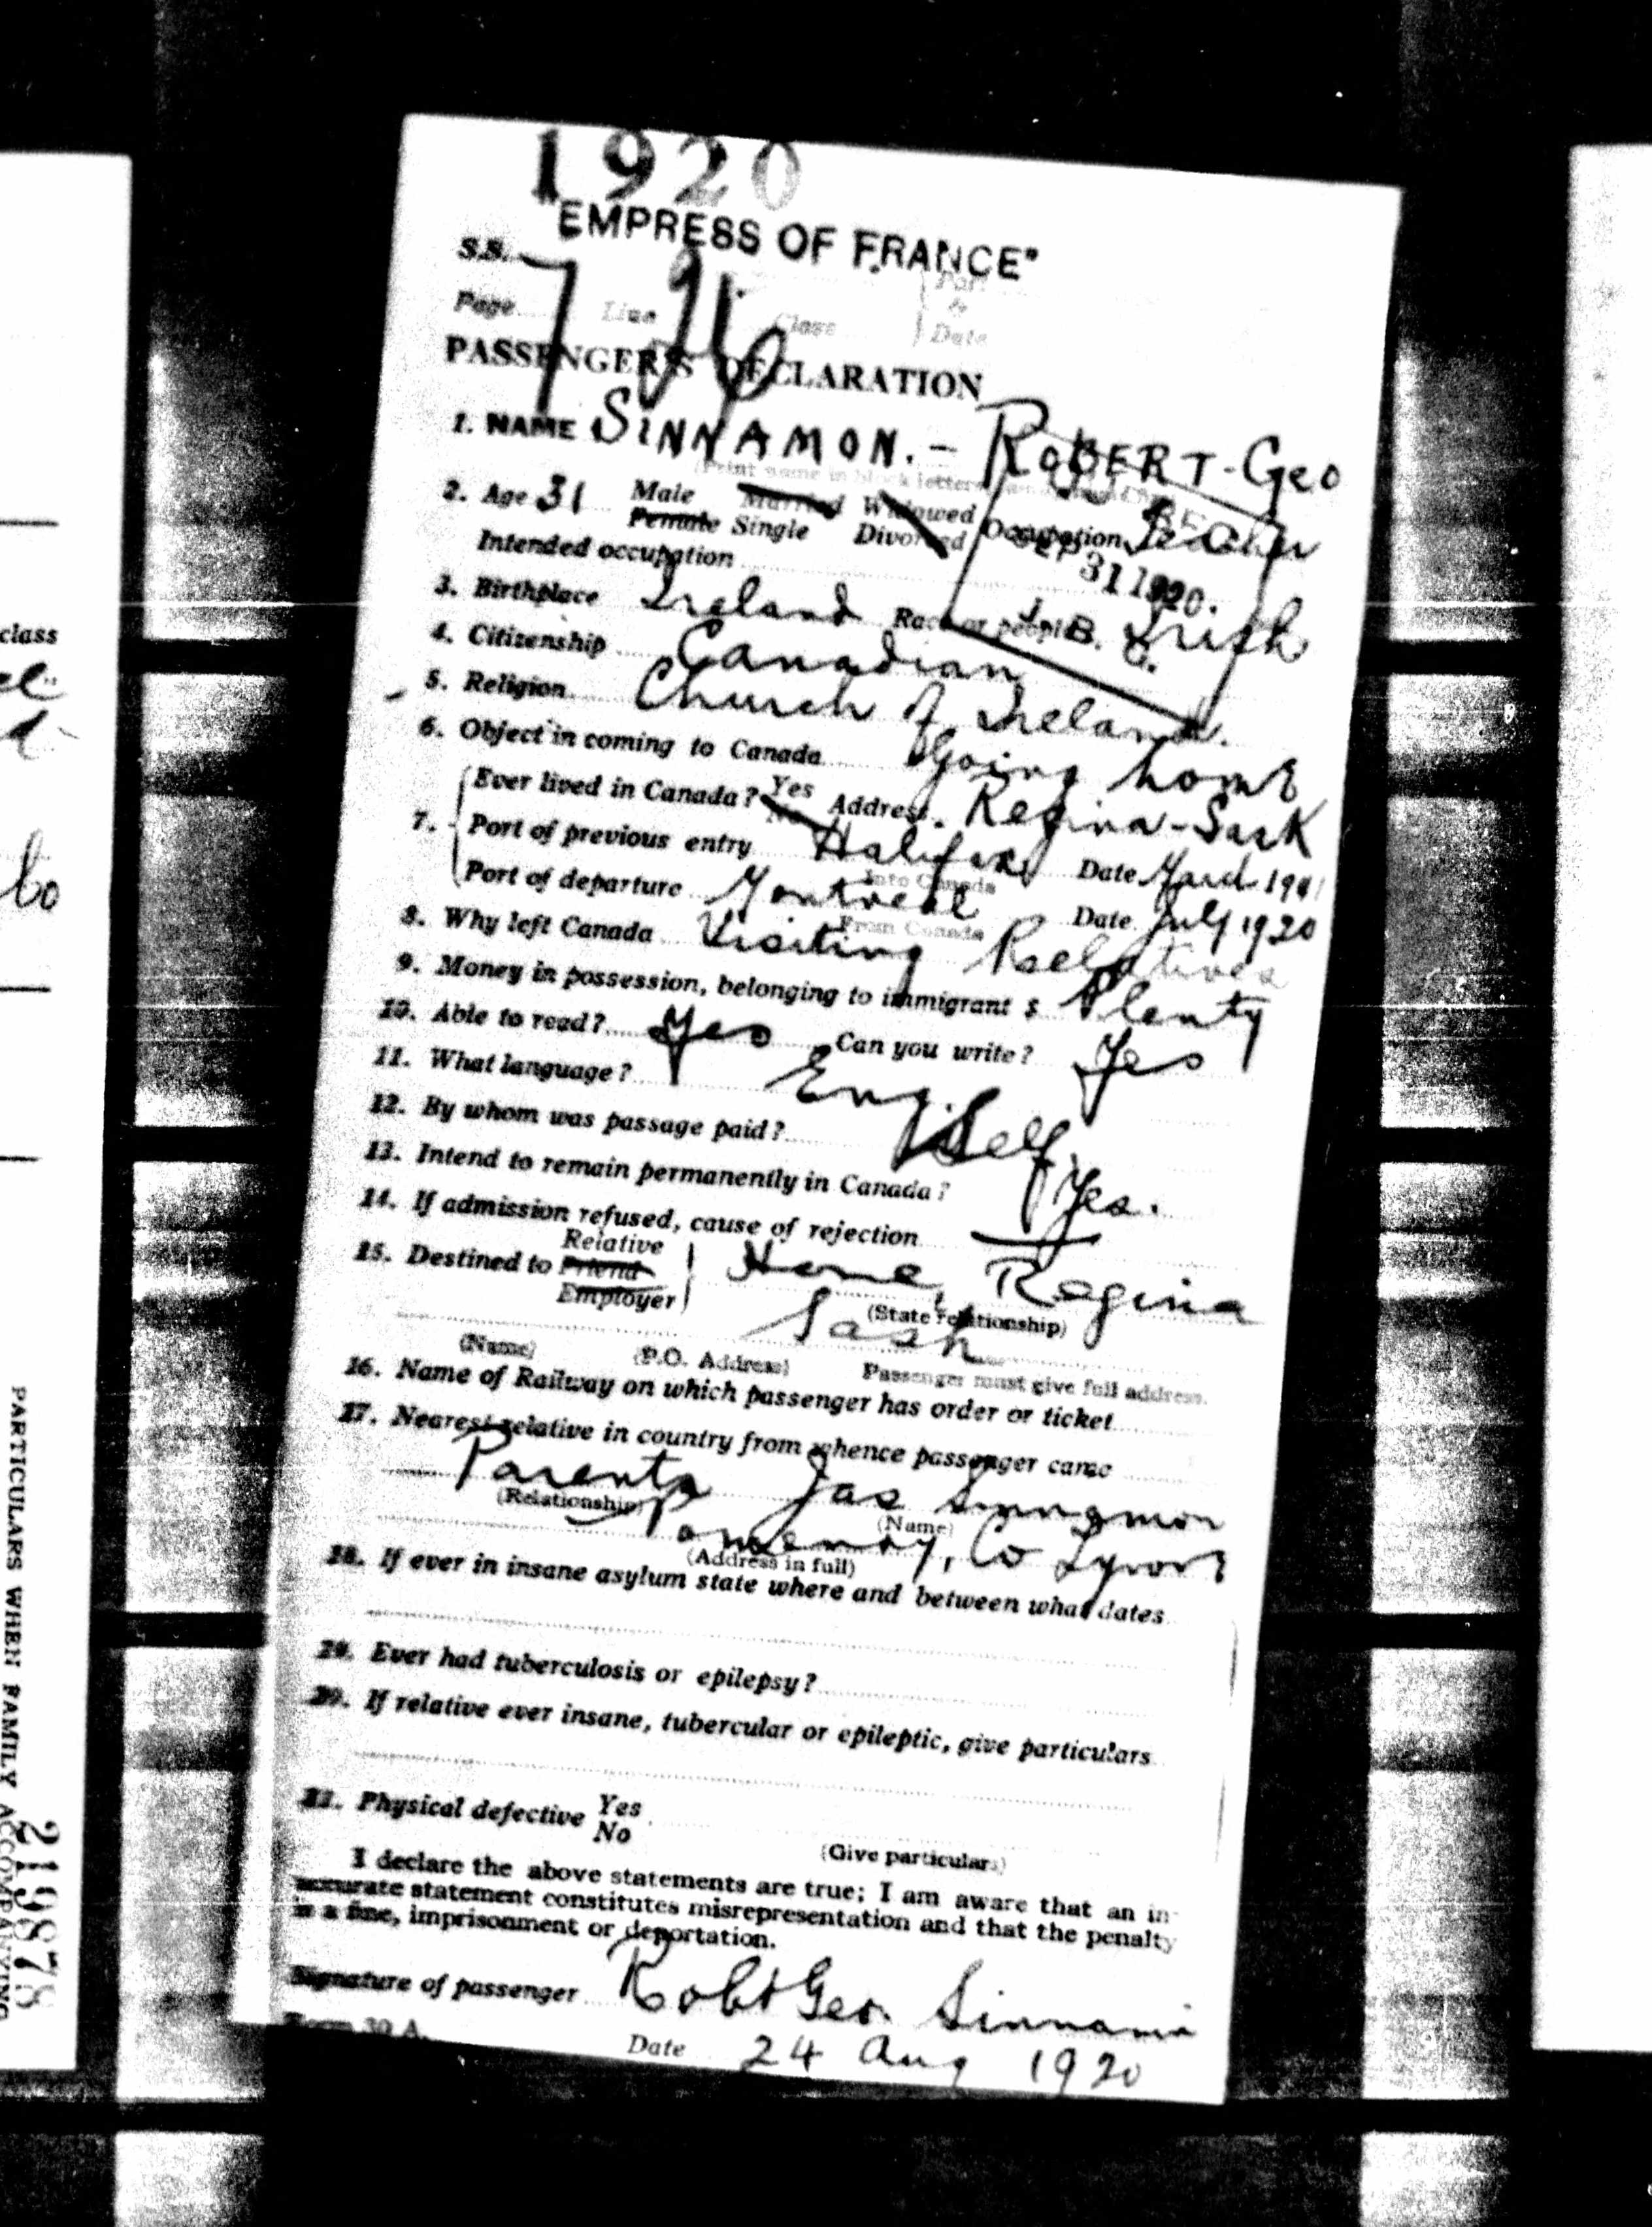 1920
"EMPRESS OF FRANCE"
S.S.
Page 7 Line 26 Class Port & Date
PASSENGER'S DECLARATION
1. NAME SINNAMON. - ROBERT-GEO
(Print name in block letters
2. Age 31 Male Married Widowed Occupation Teacher
Female Single Divorced
Intended occupation
31 1920.
3. Birthplace Ireland Race or people Irish
4. Citizenship Canadian
5. Religion Church of Ireland.
6. Object in coming to Canada Going home
7. Ever lived in Canada? Yes No Address. Regina-Sask
Port of previous entry Halifax Date March 1911
Into Canada
Port of departure Montreal Date July 1920
From Canada
8. Why left Canada Visiting Relatives
9. Money in possession, belonging to immigrant $ Plenty
10. Able to read? Yes Can you write? Yes
11. What language? Eng.
12. By whom was passage paid? Self
13. Intend to remain permanently in Canada? Yes.
14. If admission refused, cause of rejection
15. Destined to Relative Friend Employer Home, Regina
(State relationship)
Sask
(Name) (P.O. Address) Passenger must give full address.
16. Name of Railway on which passenger has order or ticket
17. Nearest relative in country from whence passenger came
Parents Jas Sinnamon
(Relationship) (Name)
Pomeroy, Co Tyrone
(Address in full)
18. If ever in insane asylum state where and between what dates
19. Ever had tuberculosis or epilepsy?
20. If relative ever insane, tubercular or epileptic, give particulars
21. Physical defective Yes No
(Give particulars)
I declare the above statements are true; I am aware that an in-
accurate statement constitutes misrepresentation and that the penalty
is a fine, imprisonment or deportation.
Signature of passenger Robt Geo. Sinnamon
Form 30 A.
Date 24 Aug 1920
class
PARTICULARS WHEN FAMILY ACCOMPANYING
219878